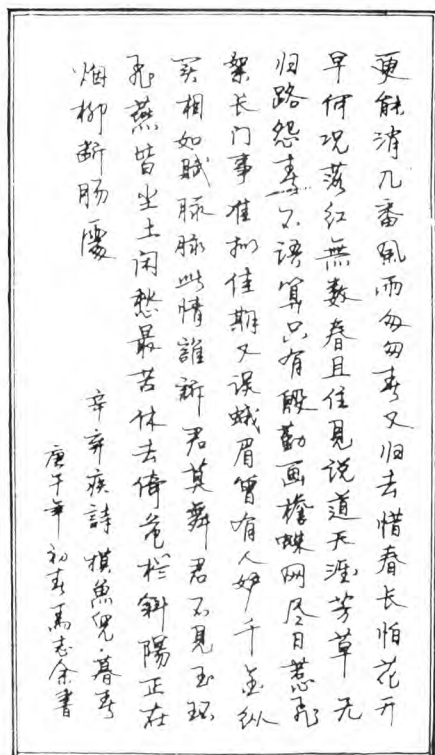 更能消几番風雨匆匆春又归去惜春长怕花开
早何况落红無数春且住見说道天涯芳草无
归路怨春不语算只有殷勤画檐蛛网尽日惹飛
絮长门事准拟佳期又误蛾眉曾有人妒千金纵
买相如賦脉脉此情誰訴君莫舞君不見玉环
飛燕皆尘土闲愁最苦休去倚危栏斜陽正在
烟柳断肠處
辛弃疾詩摸魚兒·暮春
庚午年初春馬志余書